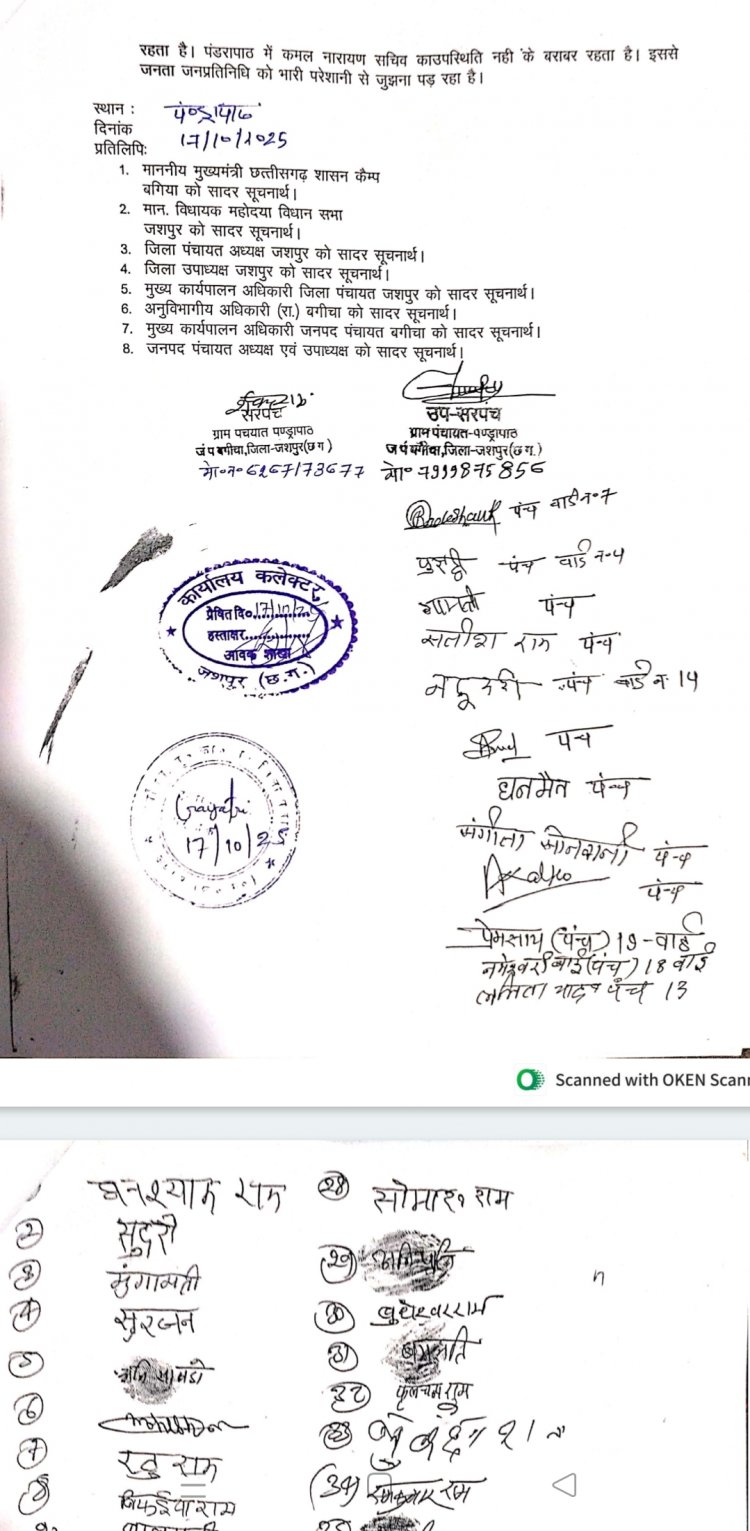 रहता है। पंडरापाठ में कमल नारायण सचिव काउपस्थिति नही के बराबर रहता है। इससे
जनता जनप्रतिनिधि को भारी परेशानी से जुझना पड़ रहा है।
स्थान : पण्ड्रापाठ
दिनांक 17/10/2025
प्रतिलिपिः
1. माननीय मुख्यमंत्री छत्तीसगढ़ शासन कैम्प
बगिया को सादर सूचनार्थ।
2. मान. विधायक महोदया विधान सभा
जशपुर को सादर सूचनार्थ।
3. जिला पंचायत अध्यक्ष जशपुर को सादर सूचनार्थ।
4. जिला उपाध्यक्ष जशपुर को सादर सूचनार्थ।
5. मुख्य कार्यपालन अधिकारी जिला पंचायत जशपुर को सादर सूचनार्थ।
6. अनुविभागीय अधिकारी (रा.) बगीचा को सादर सूचनार्थ।
7. मुख्य कार्यपालन अधिकारी जनपद पंचायत बगीचा को सादर सूचनार्थ।
8. जनपद पंचायत अध्यक्ष एवं उपाध्यक्ष को सादर सूचनार्थ।
सरपंच
ग्राम पंचयात पण्ड्रापाठ
जं प बगीचा,जिला-जशपुर(छ ग )
मो०न० 6267173677
उप-सरपंच
ग्राम पंचायत-पण्ड्रापाठ
ज पं बगीचा,जिला-जशपुर(छ ग.)
मो० 7999875856
पंच वार्ड न०7
पंच वार्ड न-4
पंच
सतीश राम पंच
पंच वार्ड न 14
पंच
धनमैत पंच
संगीता सोनवानी पंच
पंच
प्रेमसाय (पंच) 19-वार्ड
नगेश्वरी बाई (पंच) 18 वार्ड
ललिता यादव पंच 13
कार्यालय कलेक्टर
प्रेषित दि०17/10/25
हस्ताक्षर
आवक शाखा
जशपुर (छ.ग.)
Gayatri
17/10/25
Scanned with OKEN Scann
घनश्याम राम
2 सुदरी
3 मुंगामती
4 सुरजन
5
6
7 रघु राम
8
28 सोमारू राम
29
30 बुधेश्वर राम
31
32 फुलचन्द राम
33
34